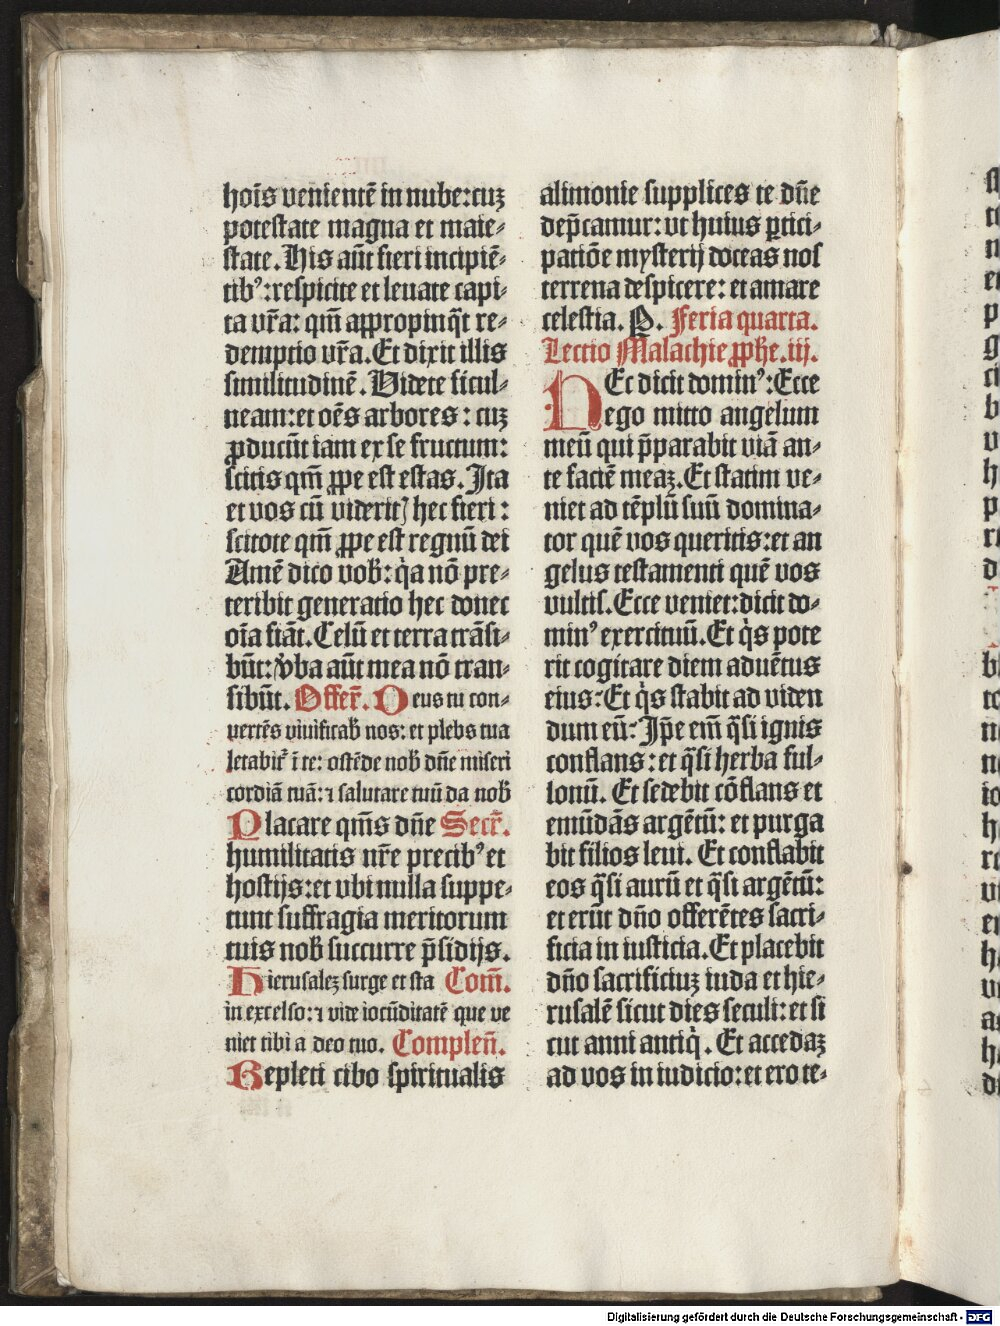 hoīs venientē in nube: cuʒ
potestate magna et maie⸗
state. His aūt fieri incipiē⸗
tibꝰ: respicite et leuate capi⸗
ta vr̄a: qm̄ appropinq̄t re⸗
demptio vr̄a. Et dixit illis
similitudinē. Videte ficul⸗
neam: et oēs arbores: cuʒ
ꝓducūt iam ex se fructum:
scitis qm̄ ꝓpe est estas. Ita
et vos cū viderit᷒ hec fieri:
scitote qm̄ ꝓpe est regnū dei
Amē dico vob̄: q̇a nō pre⸗
teribit generatio hec donec
oīa fiāt. Celū et terra trāsi⸗
būt: v̓ba aūt mea nō tran⸗
sibūt. Offer̄. Deus tu con⸗
uertēs viuificab̄ nos: et plebs tua
letabit᷑ ī te: ostēde nob̄ dn̄e miseri
cordiā tuā: ⁊ salutare tuū da nob̄
Placare qm̄s dn̄e Secr̄.
humilitatis nr̄e precibꝰ et
hostijs: et vbi nulla suppe⸗
tunt suffragia meritorum
tuis nob̄ succurre p̄sidijs.
Hierusaleʒ surge et sta Com̄.
in excelso: ⁊ vide iocūditatē que ve
niet tibi a deo tuo. Complen̄.
Repleti cibo spiritualis
alimonie supplices te dn̄e
dep̄camur: vt huius ꝑtici⸗
patiōe mysterij doceas nos
terrena despicere: et amare
celestia. P. Feria quarta.
Lectio Malachie ꝓphe. iij.
HEc dicit dominꝰ: Ecce
ego mitto angelum
meū qui p̄parabit viā an⸗
te faciē meaʒ. Et statim ve⸗
niet ad tēplū suū domina⸗
tor quē vos queritis: et an
gelus testamenti quē vos
vultis. Ecce veniet: dicit do⸗
minꝰ exercituū. Et q̇s pote
rit cogitare diem aduētus
eius: Et q̇s stabit ad viden
dum eū: Ip̄e em̄ q̄si ignis
conflans: et q̄si herba ful⸗
lonū. Et sedebit cōflans et
emūdās argētū: et purga
bit filios leui. Et conflabit
eos q̄si aurū et q̄si argētū:
et erūt dn̄o offerētes sacri⸗
ficia in iusticia. Et placebit
dn̄o sacrificiuʒ iuda et hie⸗
rusalē sicut dies seculi: et si
cut anni antiq̇. Et accedaʒ
ad vos in iudicio: et ero te⸗
Digitalisierung gefördert durch die Deutsche Forschungsgemeinschaft - DFG